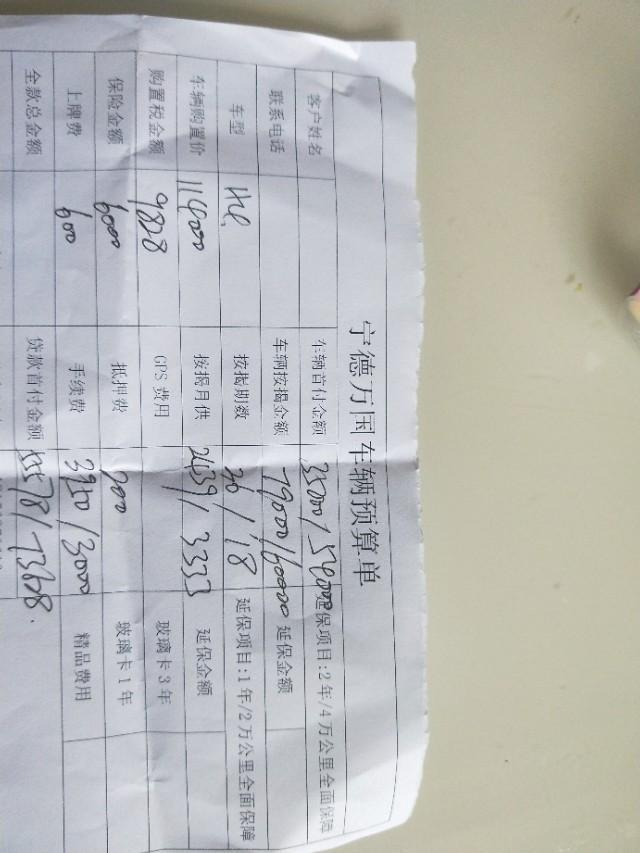 宁德万国车辆预算单
客户姓名 车辆首付金额 35000/54000 延保项目:2年/4万公里全面保障
联系电话 车辆按揭金额 79000/60000 延保金额
车型 H6 按揭期数 36/18 延保项目:1年/2万公里全面保障
车辆购置价 114000 按揭月供 2439/3333 延保金额
购置税金额 9828 GPS费用 玻璃卡3年
保险金额 6000 抵押费 200 玻璃卡1年
上牌费 600 手续费 3950/3000 精品费用
全款总金额 贷款首付金额 55578/73628.